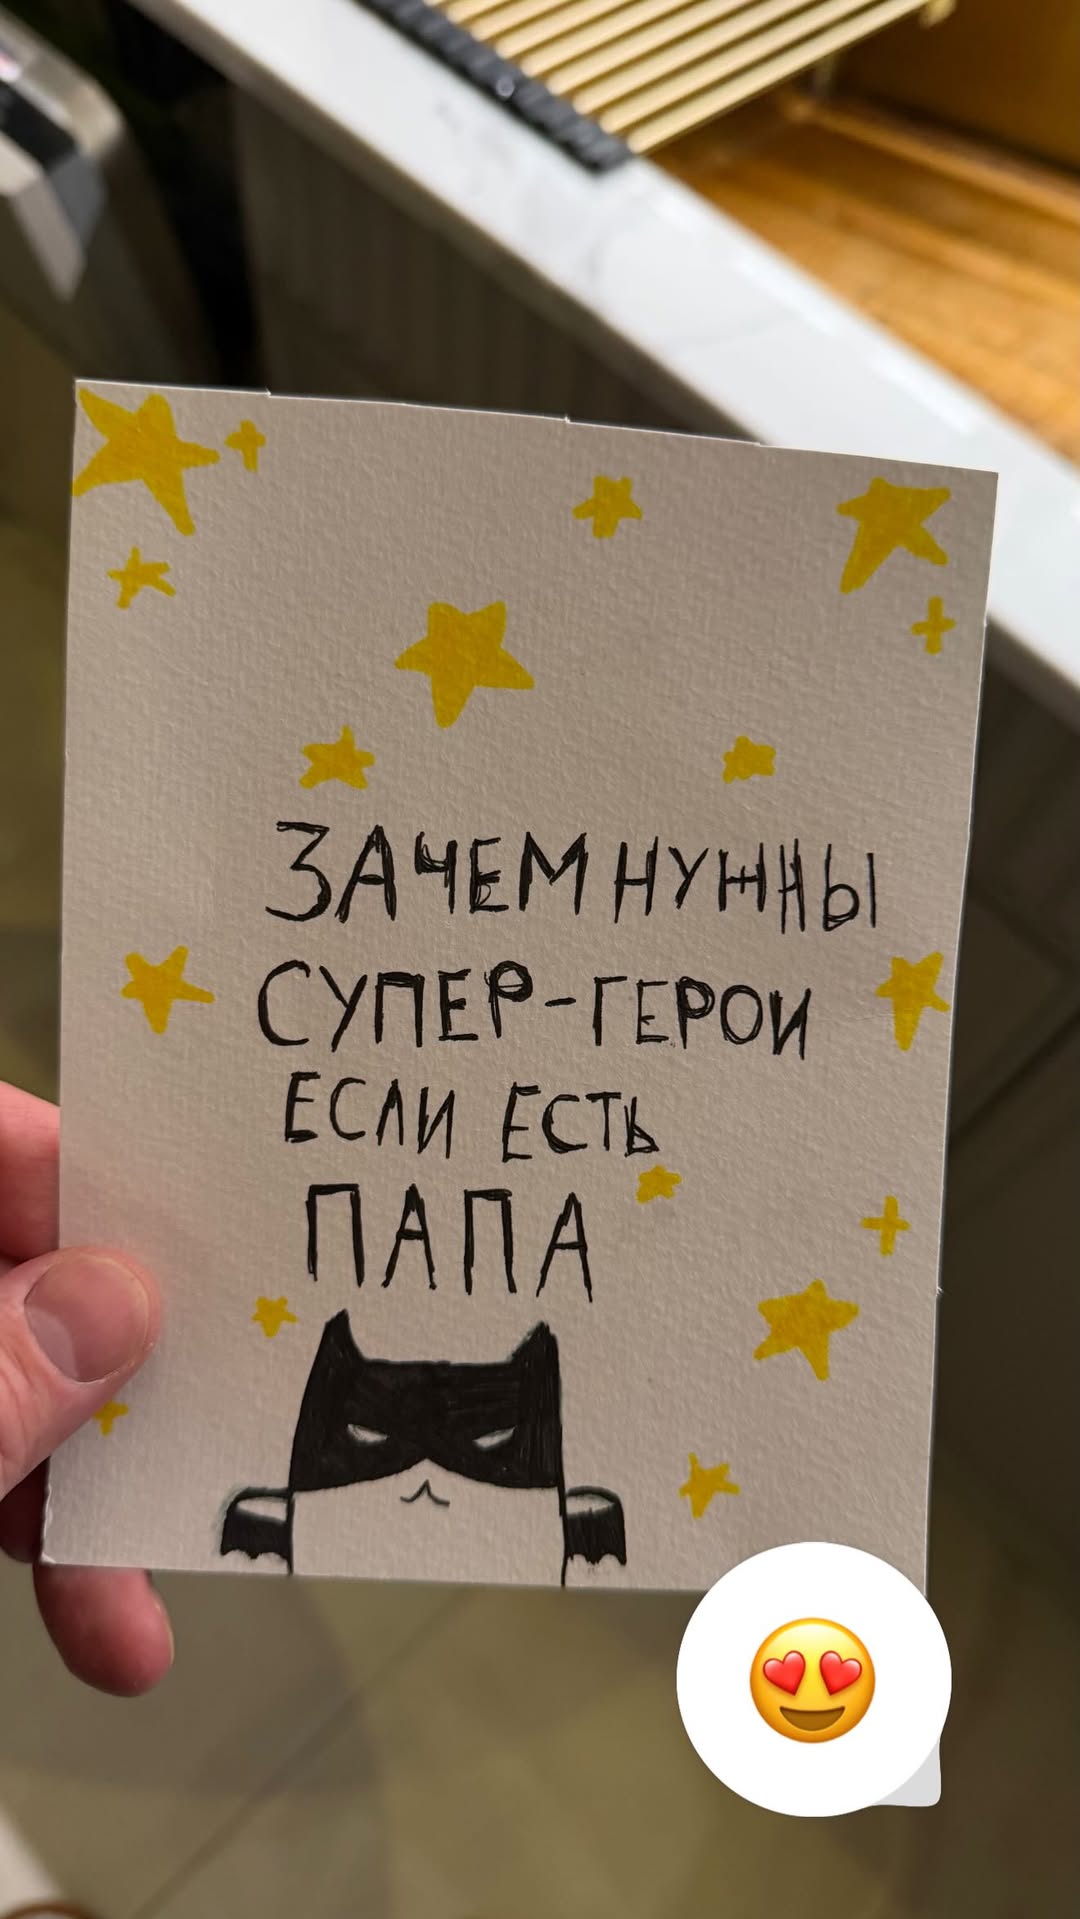 ЗАЧЕМ НУЖНЫ
СУПЕР-ГЕРОИ
ЕСЛИ ЕСТЬ
ПАПА